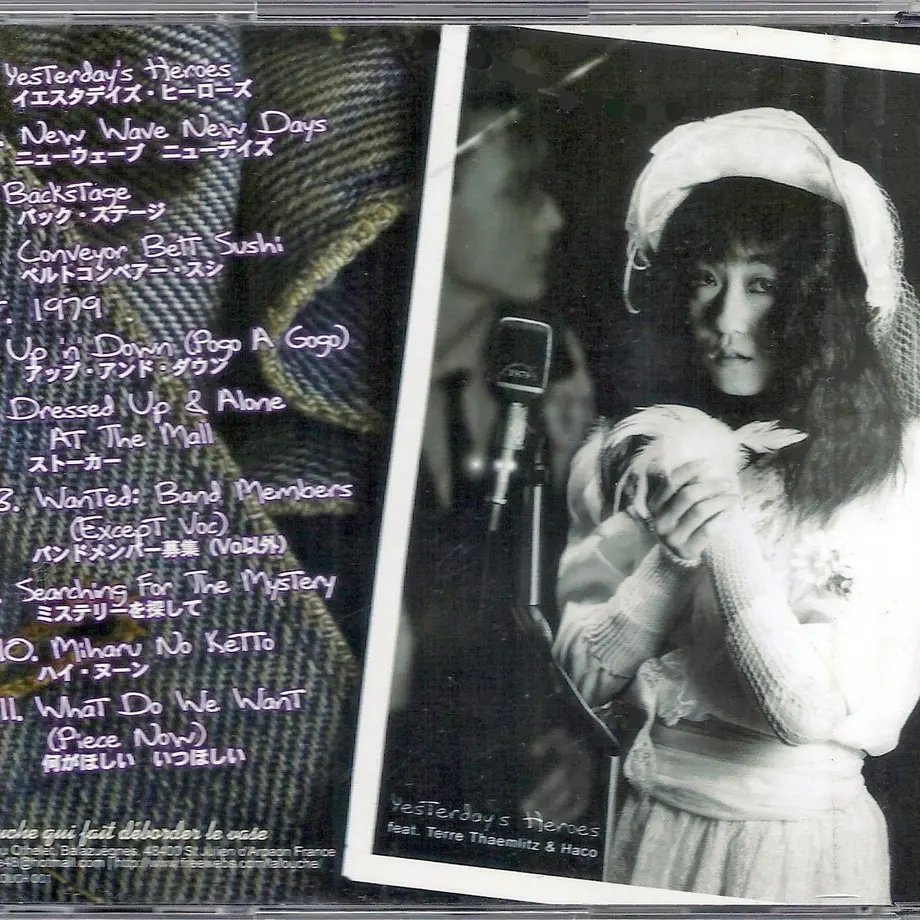 Yesterday's Heroes
イエスタデイズ・ヒーローズ
New Wave New Days
ニューウェーブ ニューデイズ
Backstage
バック・ステージ
Conveyor Belt Sushi
ベルトコンベアー・スシ
1979
Up 'n' Down (Pogo A Gogo)
アップ・アンド・ダウン
Dressed Up & Alone
At The Mall
ストーカー
8. Wanted: Band Members
(Except Voc)
バンドメンバー募集 (Vo以外)
Searching For The Mystery
ミステリーを探して
10. Miharu No Ketto
ハイ・ヌーン
11. What Do We Want
(Piece Now)
何がほしい いつほしい
qui fait déborder le vase
43400 St Julien d'Arpaon France
Yesterday's Heroes
feat. Terre Thaemlitz & Haco